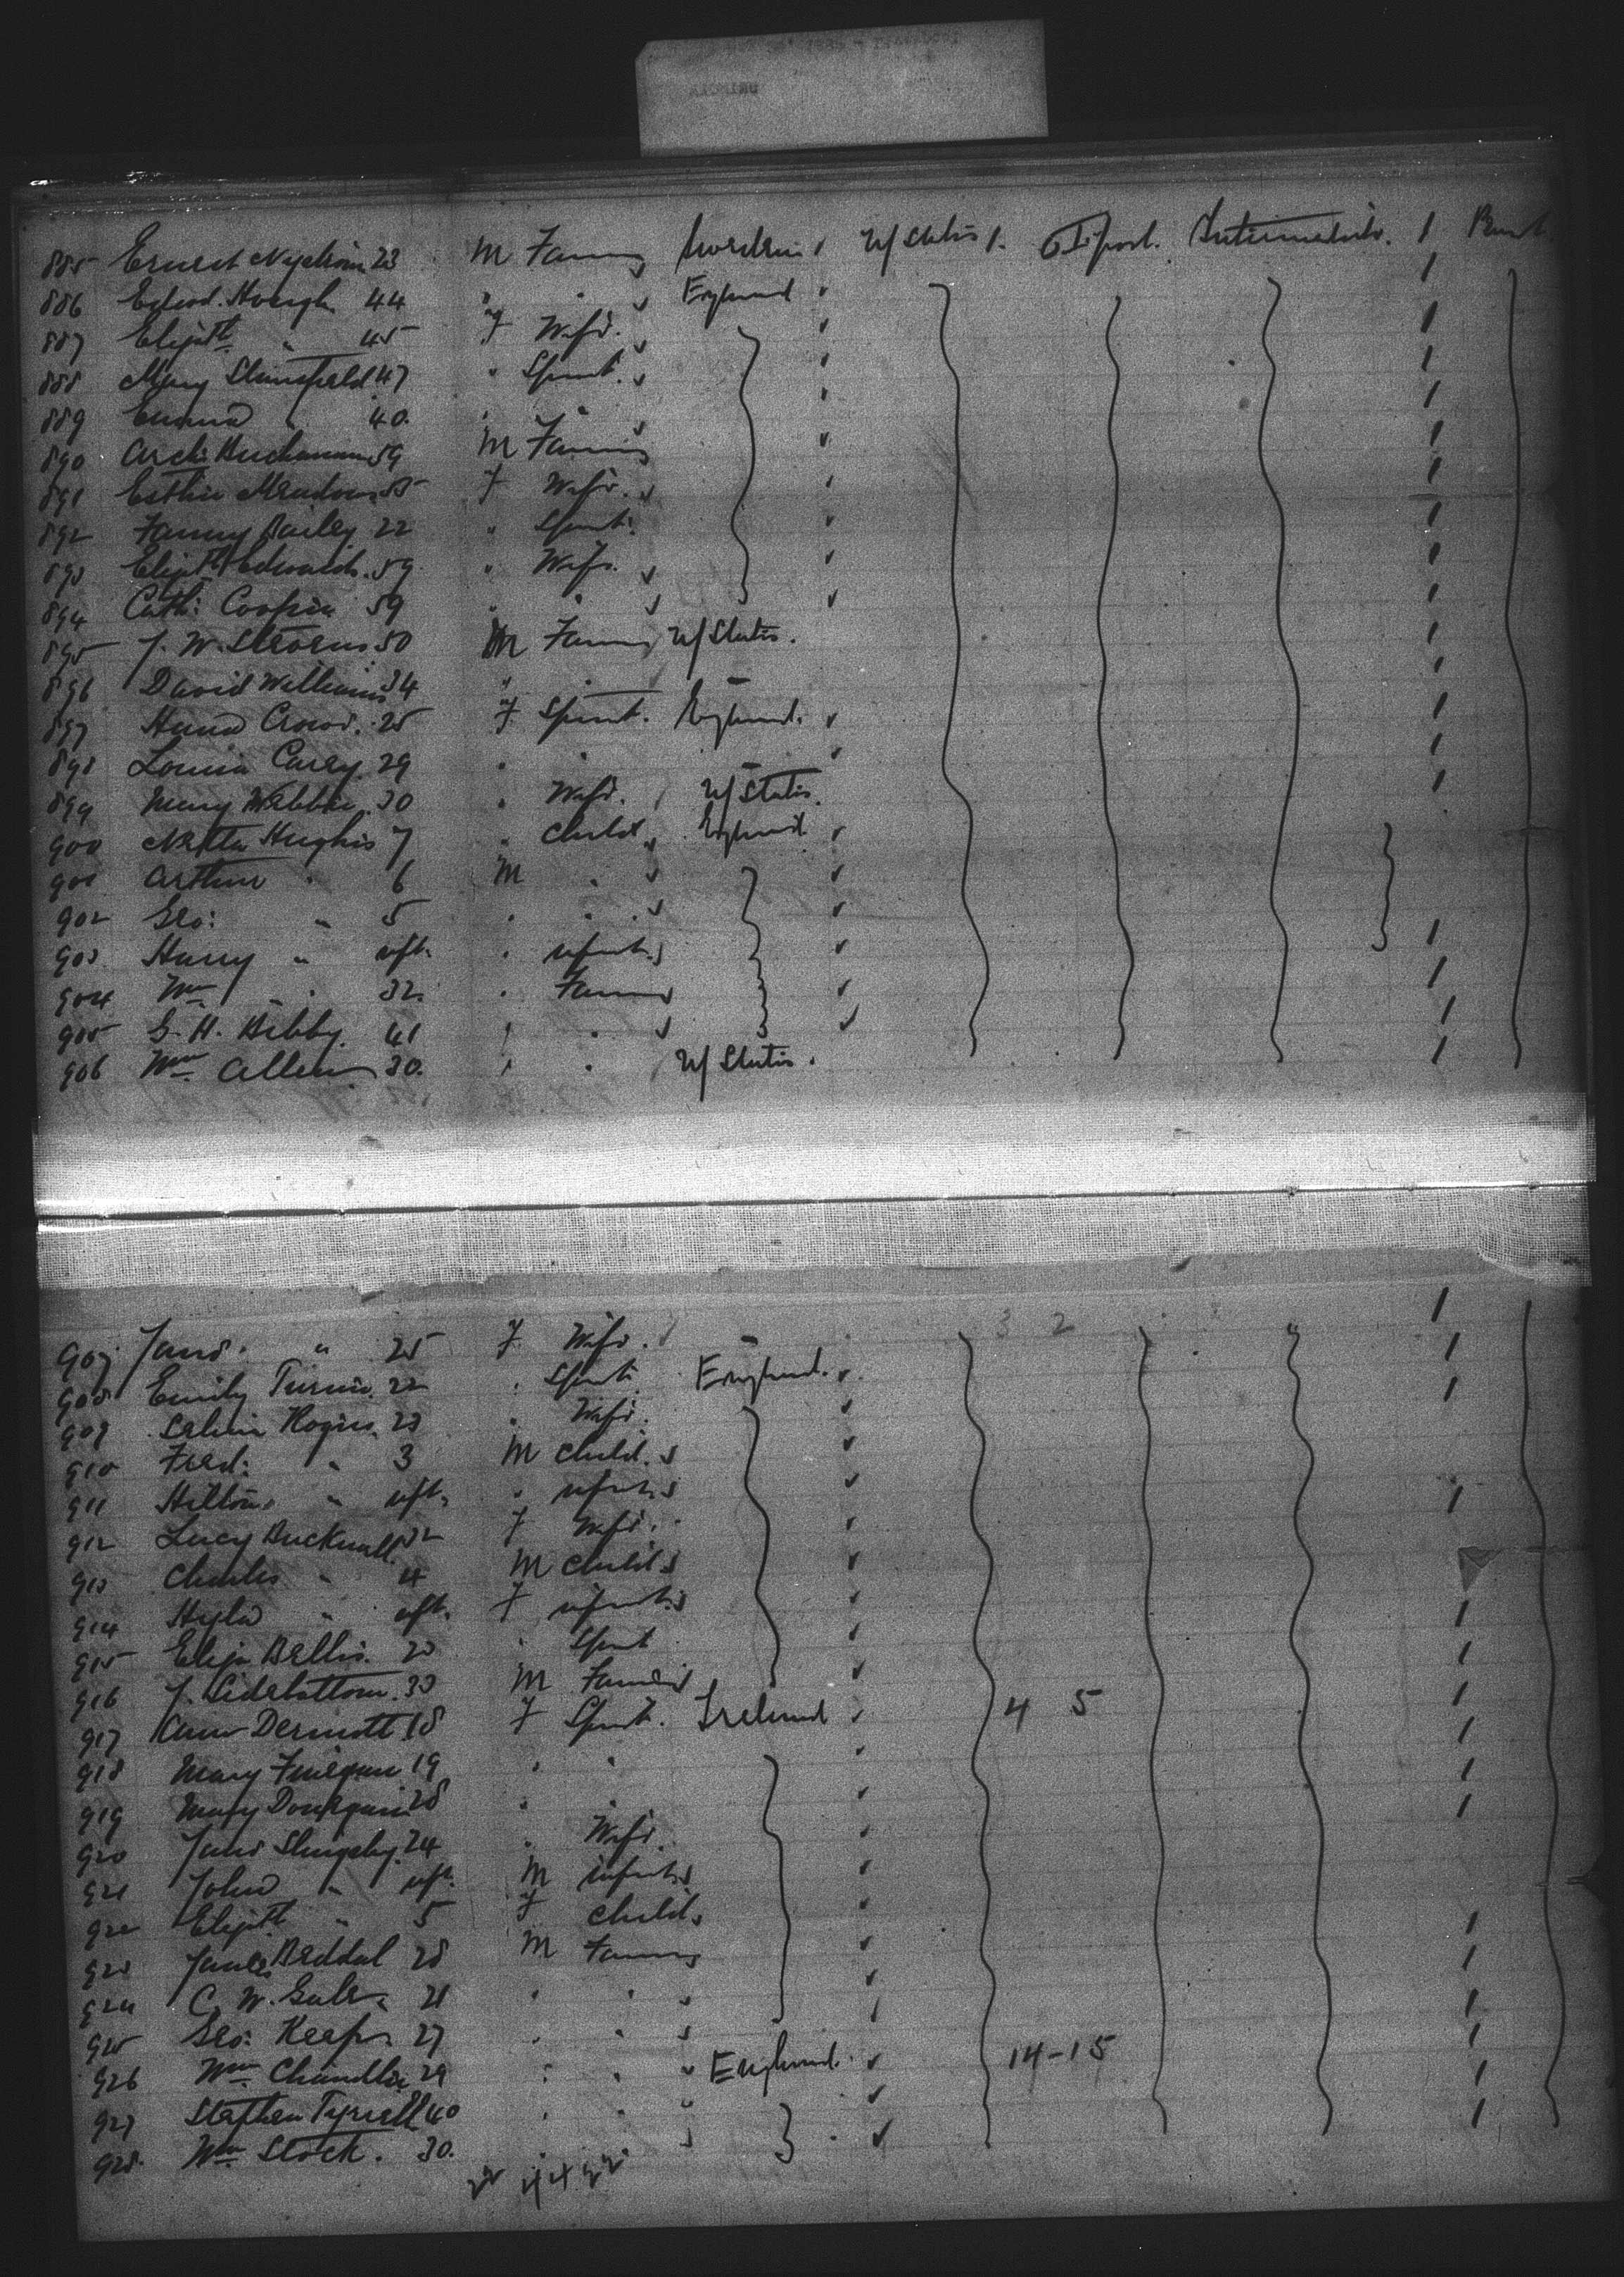 885 Ernest Nystrom 23 M Farmer Sweden U/States 1. Intermediate. 1
886 44 " " England
887 Elizth " 45 F Wife.
888 Mary Stansfield 47 " Spinst.
889 Emma " 40. " "
890 Arch: Buchanan 59 M Farmer
891 Esther Meadows F Wife.
892 Fanny Bailey 22 " Spinst:
893 Elizth Edwards. 59 " Wife.
894 Cath: Cooper 59 " "
895 J. W. Stevens 50 M Farmer U/States.
896 David Williams 34 " " "
897 Crow. 25 F Spinst. England.
898 Louisa Carey. 29 " " "
899 Mary Webber. 30 " Wife. U/States.
900 Hughes 7 " Child England
901 Arthur " 6 M "
902 Geo: " 5 " "
903 Harry " inft. " infant
904 Wm " 32. " Farmer
905 G. H. Bibby. 41 " "
906 Wm Allen 30. " " U/States.
907 Jane. " 25 F Wife. " 3 2
908 Emily Turner. 22 " Spinst. England.
909 Rogers. 23 " Wife.
910 Fred: " 3 M Child.
911 Hilton " inft. " infant
912 Lucy Bucknall 32 F Wife.
913 Charles " 4 M Child
914 " inft. F infant
915 Eliza Bellis. 20 " Spinst
916 J. Sidebottom. 30 M Farmer
917 Dermott 18 F Spinst. Ireland 4 5
918 Mary Finegan 19 " "
919 Mary 28 " "
920 Jane Slingsby. 24 " Wife
921 John " inft. M infant
922 Elizth " 5 F Child
923 James Beddal 28 M Farmer
924 C. W. Gale. 21 " "
925 Geo: Keep. 27 " "
926 Wm. Chandler 29 " " England. 14-15
927 Stephen Tyrrell 40 " "
928. Wm Stock. 30. "